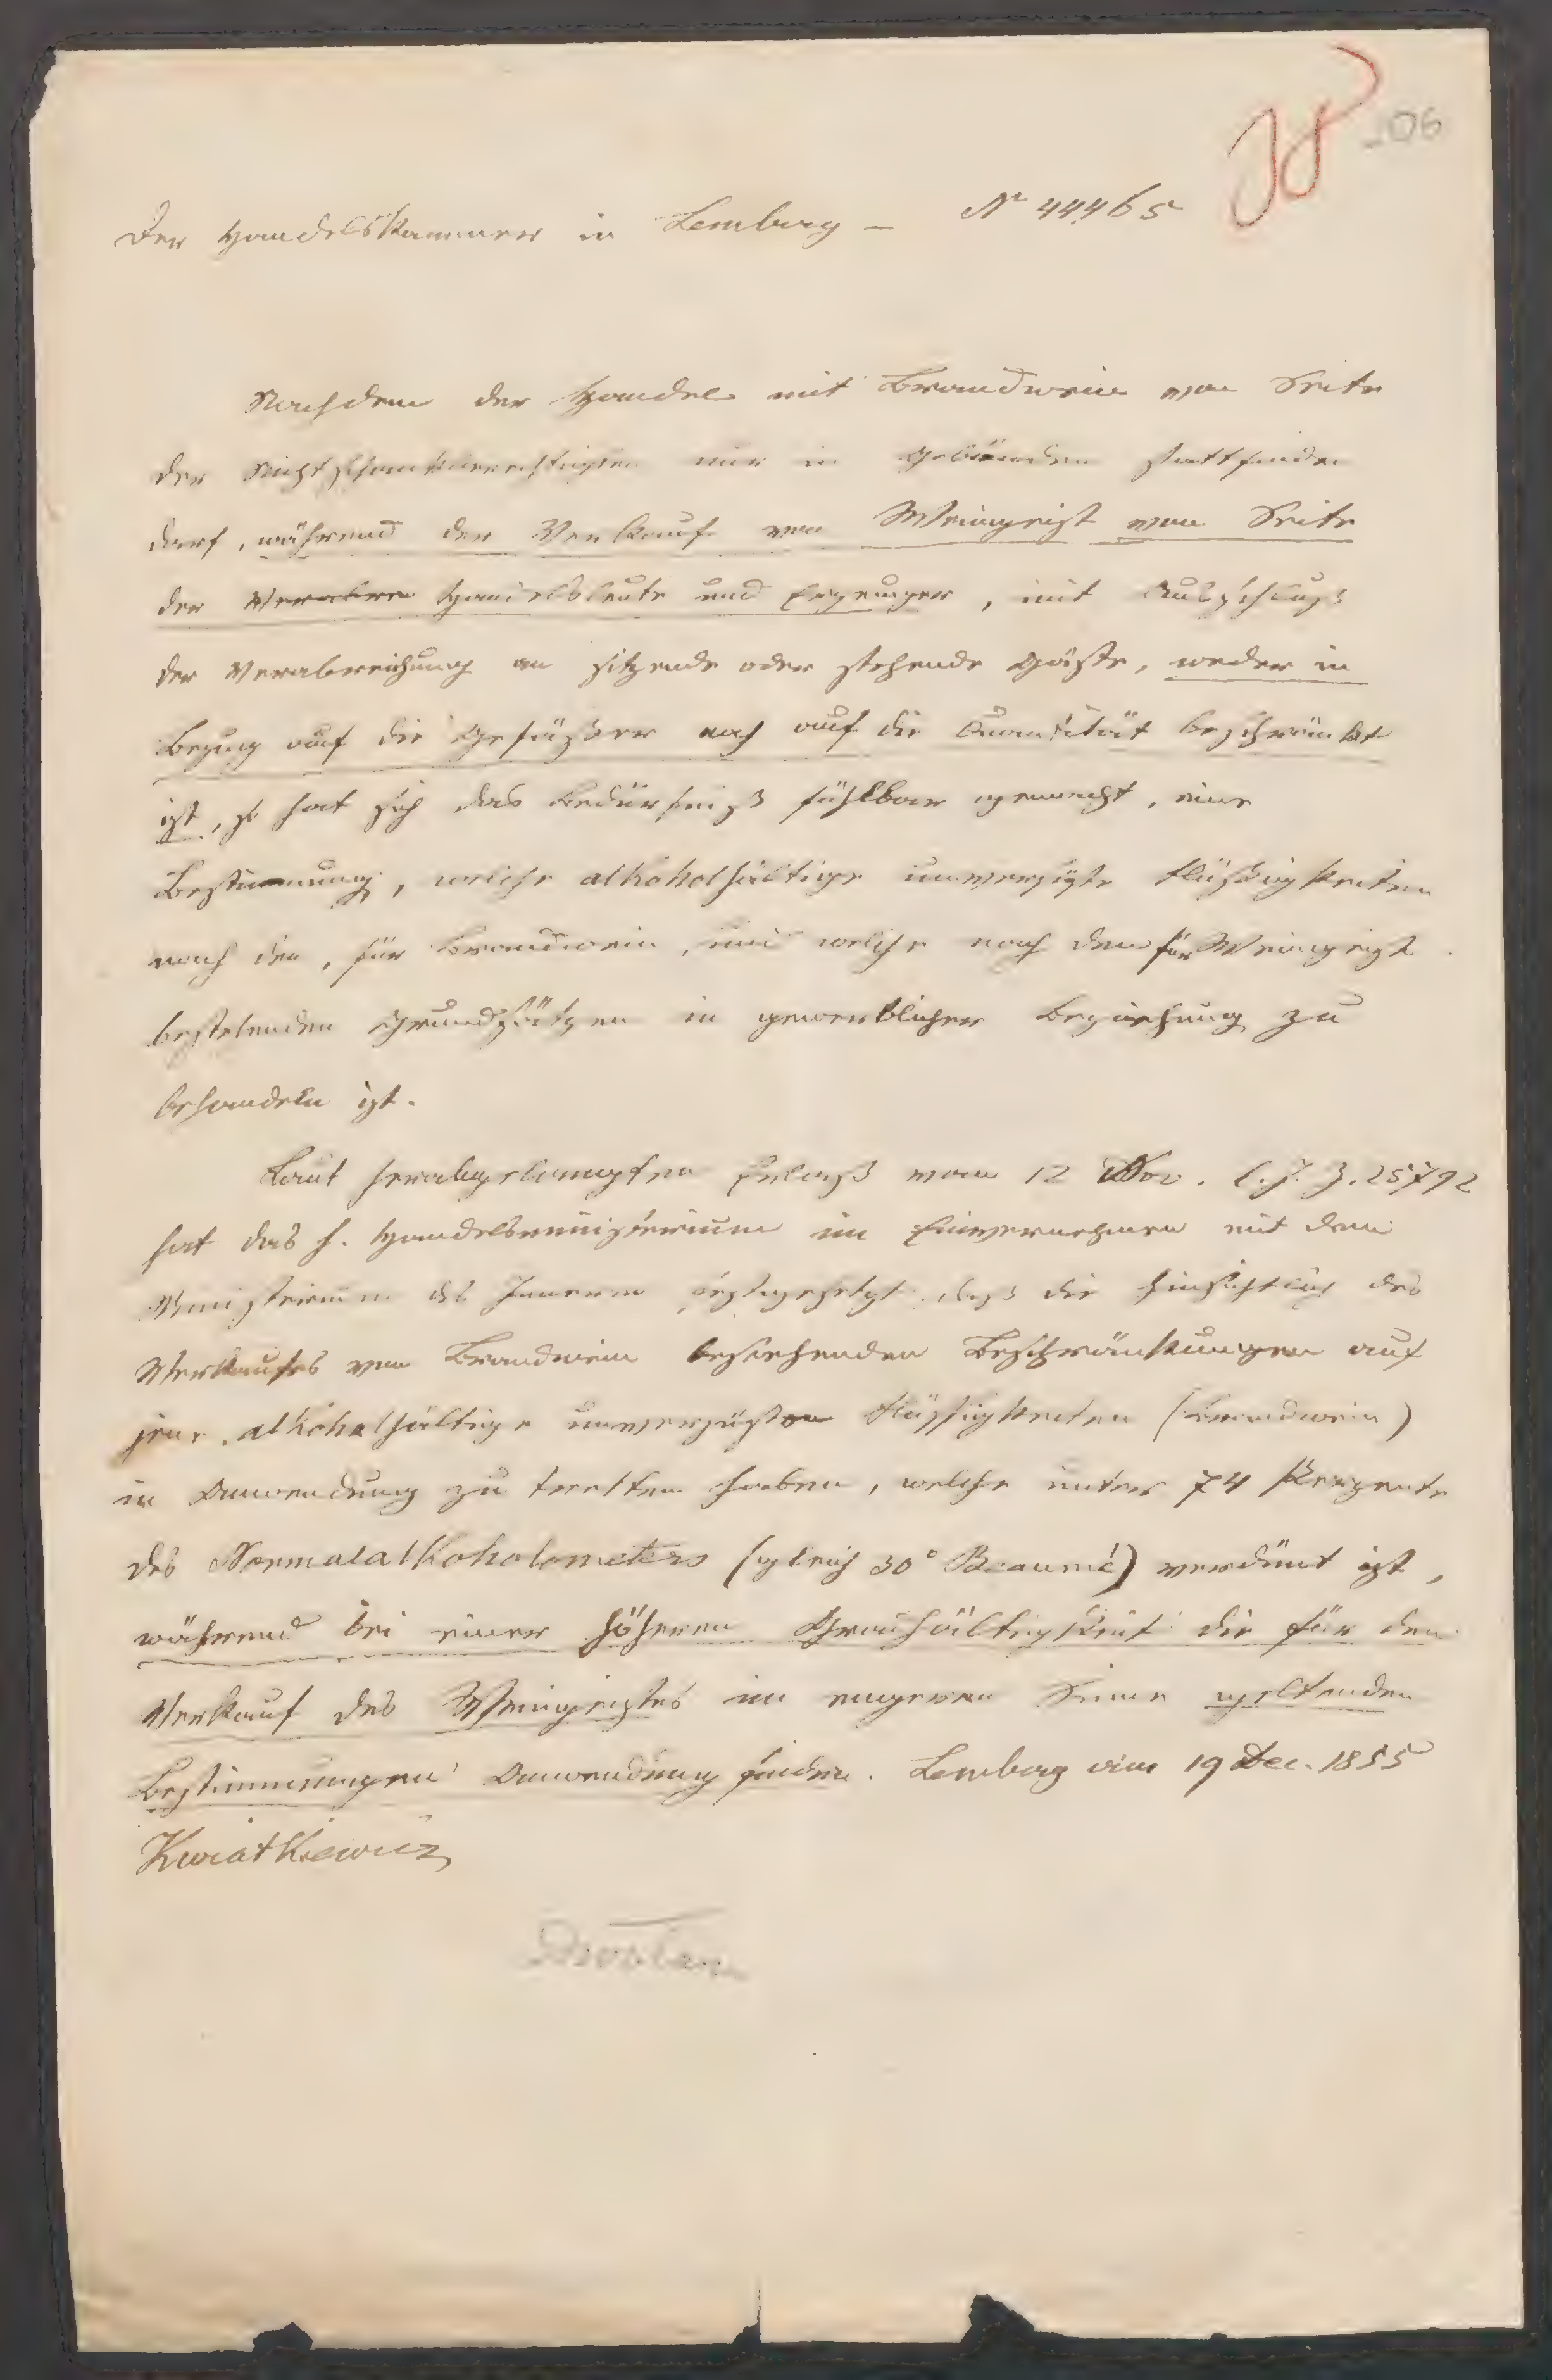 106
Der Handelskammer in Lemberg – Nr 44465
Nachdem der Handel mit Brandwein von Seite
der Nichtschankberechtigten nur in Gebünden stattfinden
darf, während der Verkauf von Weingeist von Seite
der Verabre Handelsleute und Erzeuger, mit Ausschluß
der Verabreichung an sitzende oder stehende Gäste, weder in
Bezug auf die Gefässer noch auf die Quantität beschränkt
ist, so hat sich das Bedürfniß fühlbar gemacht, eine
Bestimmung, welche alkoholhältige unversüßte Flüßigkeiten
nach den, für Brandwein, und welche nach den für Weingeist
bestehenden Grundsätzen in gewerblicher Beziehung zu
behandeln ist.
Laut herabgelangten Erlaß vom 12 Nov. l. J. Z. 25792
hat das h. Handelsministerium im Einvernehmen mit dem
Ministerium des Innern festgesetzt, daß die hinsichtlich des
Verkaufes von Brandwein bestehenden Beschränkungen auf
jene alkoholhältige unversüßten Flüssigkeiten (Brandwein)
in Anwendung zu tretten haben, welche unter 74 Perzente
des Normalalkoholometers (gleich 30° Beaumé) verdünt ist,
während bei einer höheren Gradhältigkeit die für den
Verkauf des Weingeistes im engeren Sinne geltenden
Bestimmungen Anwendung finden. Lemberg am 19 Dec. 1855
Kwiatkiewicz